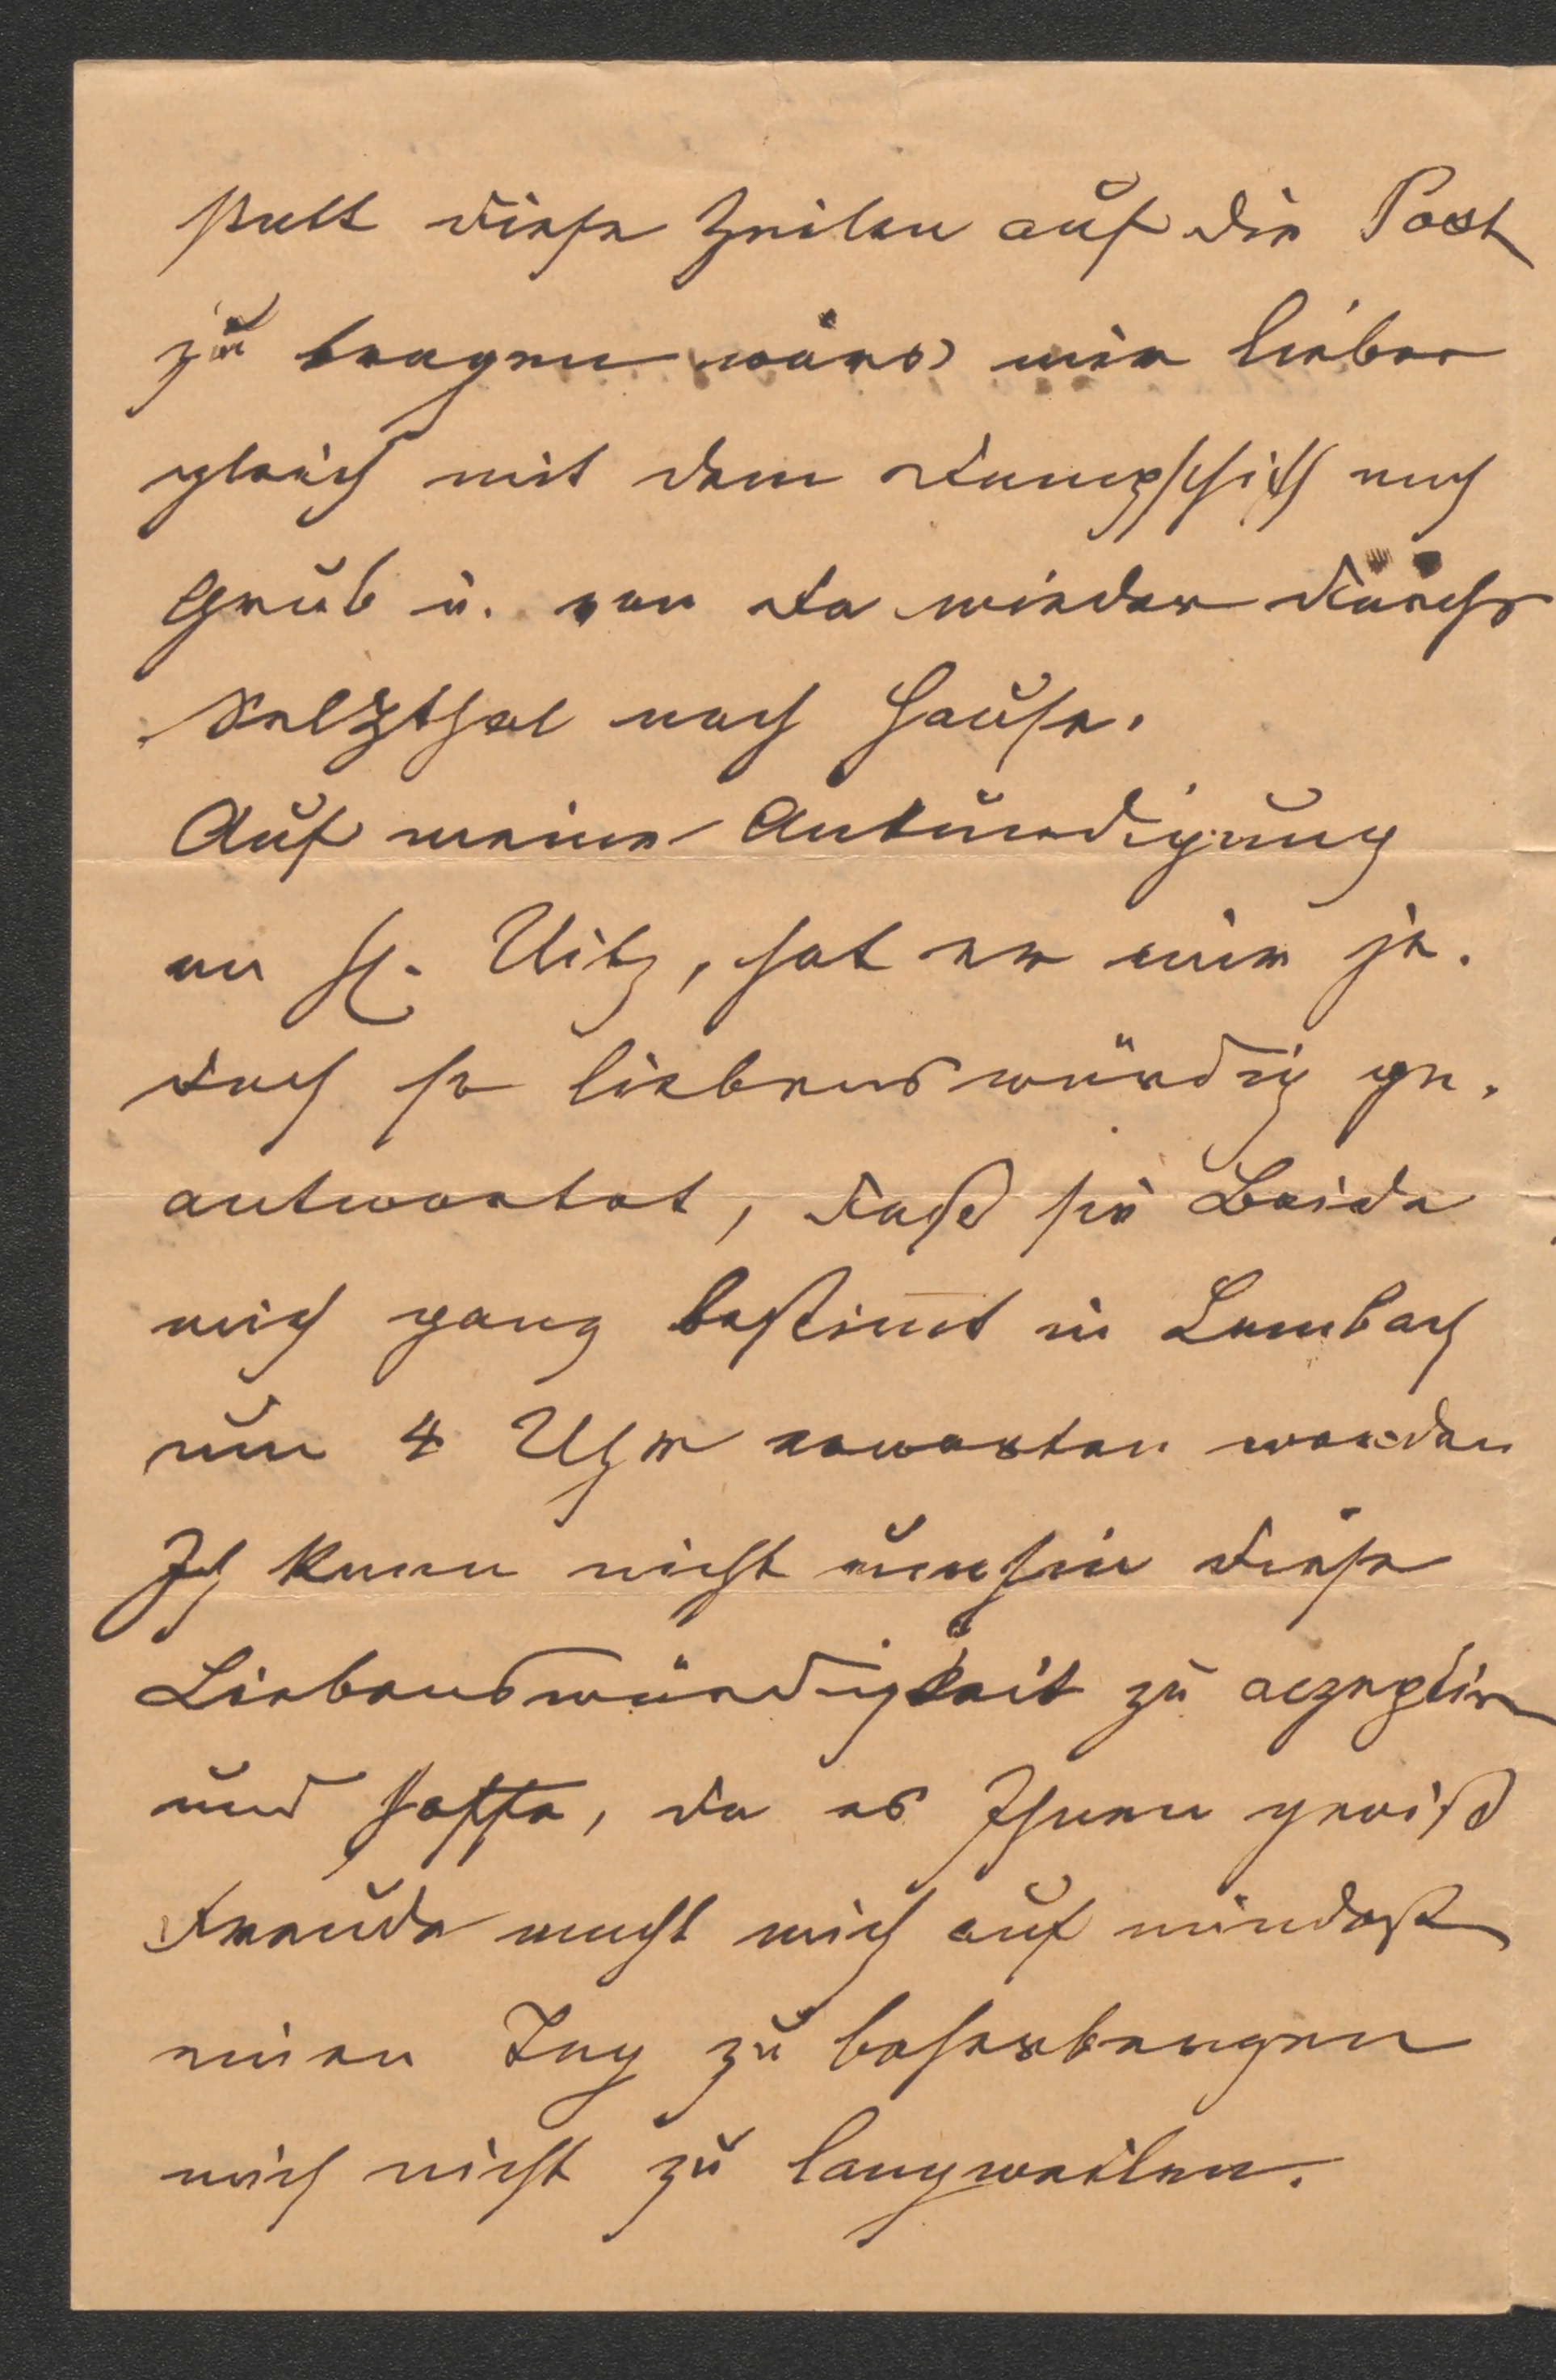 statt diese Zeilen auf die Post
zu tragen wärs mir lieber
gleich mit dem Dampfschiff nach
Grub u. von da wieder durchs
Salzthal nach Hause.
Auf meine Ankündigung
an H. Uitz, hat er mir je-
doch so liebenswürdig ge-
antwortet, daß sie Beide
mich ganz bestimt in Lambach
um 4 Uhr erwarten werden
Ich kann nicht umhin diese
Liebenswürdigkeit zu aczeptirn
und hoffe, da es Ihnen gewiß
Freude macht mich auf mindest
einen Tag zu beherbergen
mich nicht zu langweilen.